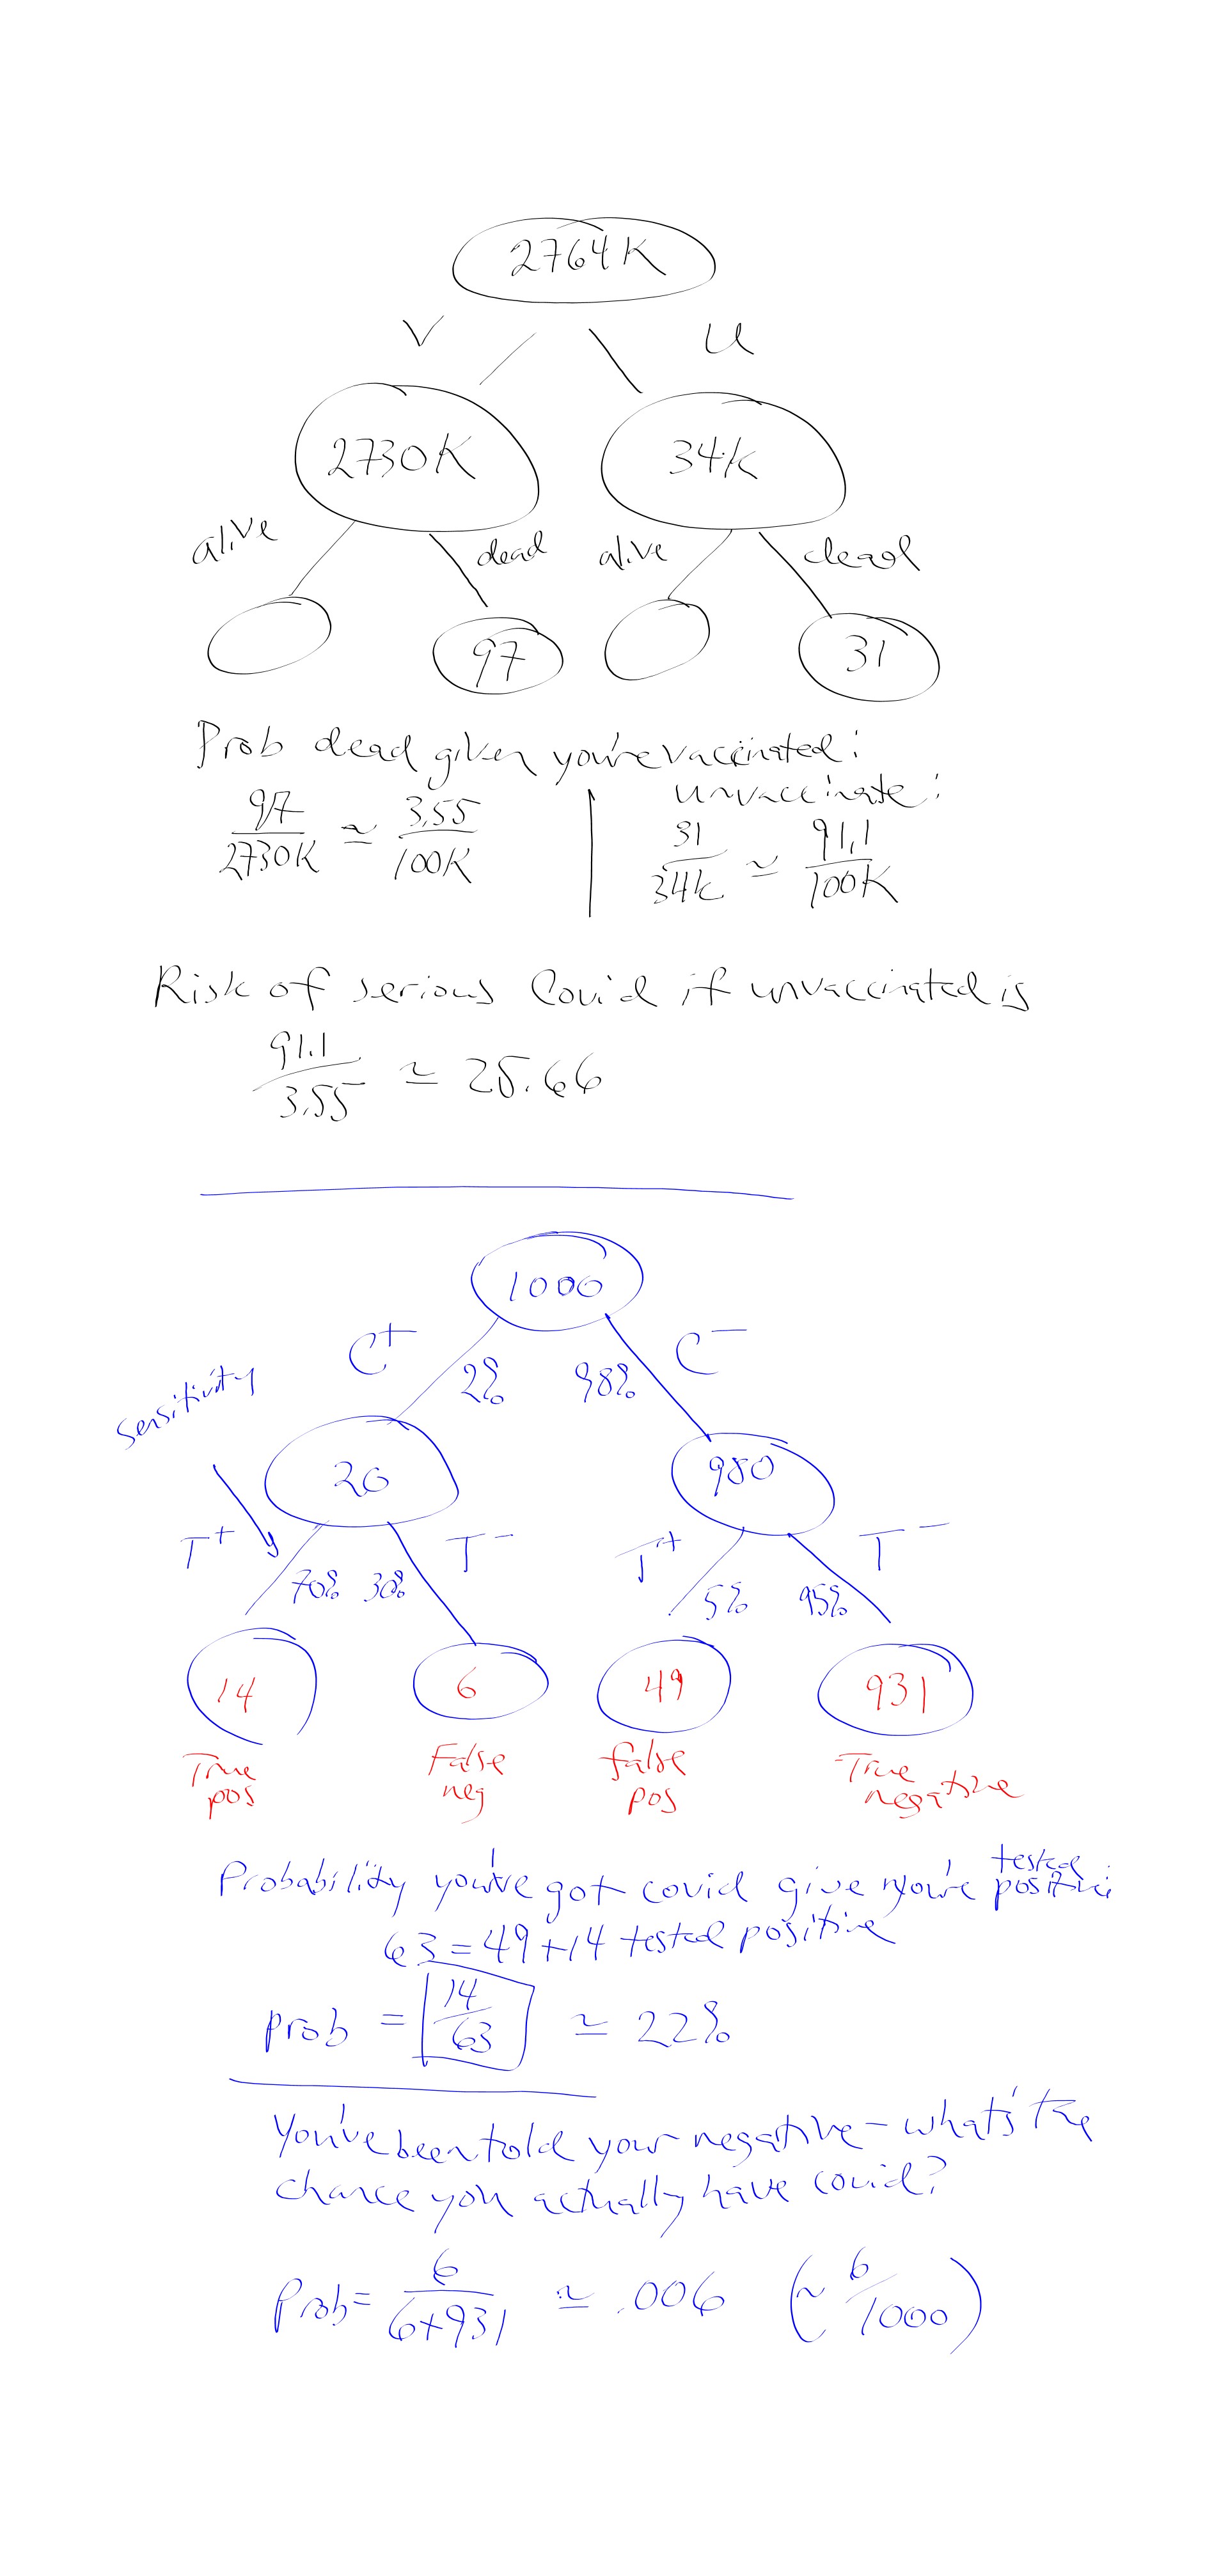 2764K
V U
2730K 34k
alive dead alive dead
97 31
Prob dead given you're vaccinated:
unvaccinate:
97/2730K ≃ 3.55/100K | 31/34k ≃ 91.1/100K
Risk of serious Covid if unvaccinated is
91.1/3.55 ≃ 25.66
1000
C+ 2% 98% C-
sensitivity
20 980
T+ 70% 30% T- T+ 5% 95% T-
14 6 49 931
True pos
False neg
false pos
True negative
Probability you've got covid give n you're tested positive:
63 = 49 + 14 tested positive
prob = 14/63 ≃ 22%
You've been told your negative - what's the
chance you actually have covid?
Prob = 6/6+931 ≃ .006 (~ 6/1000)